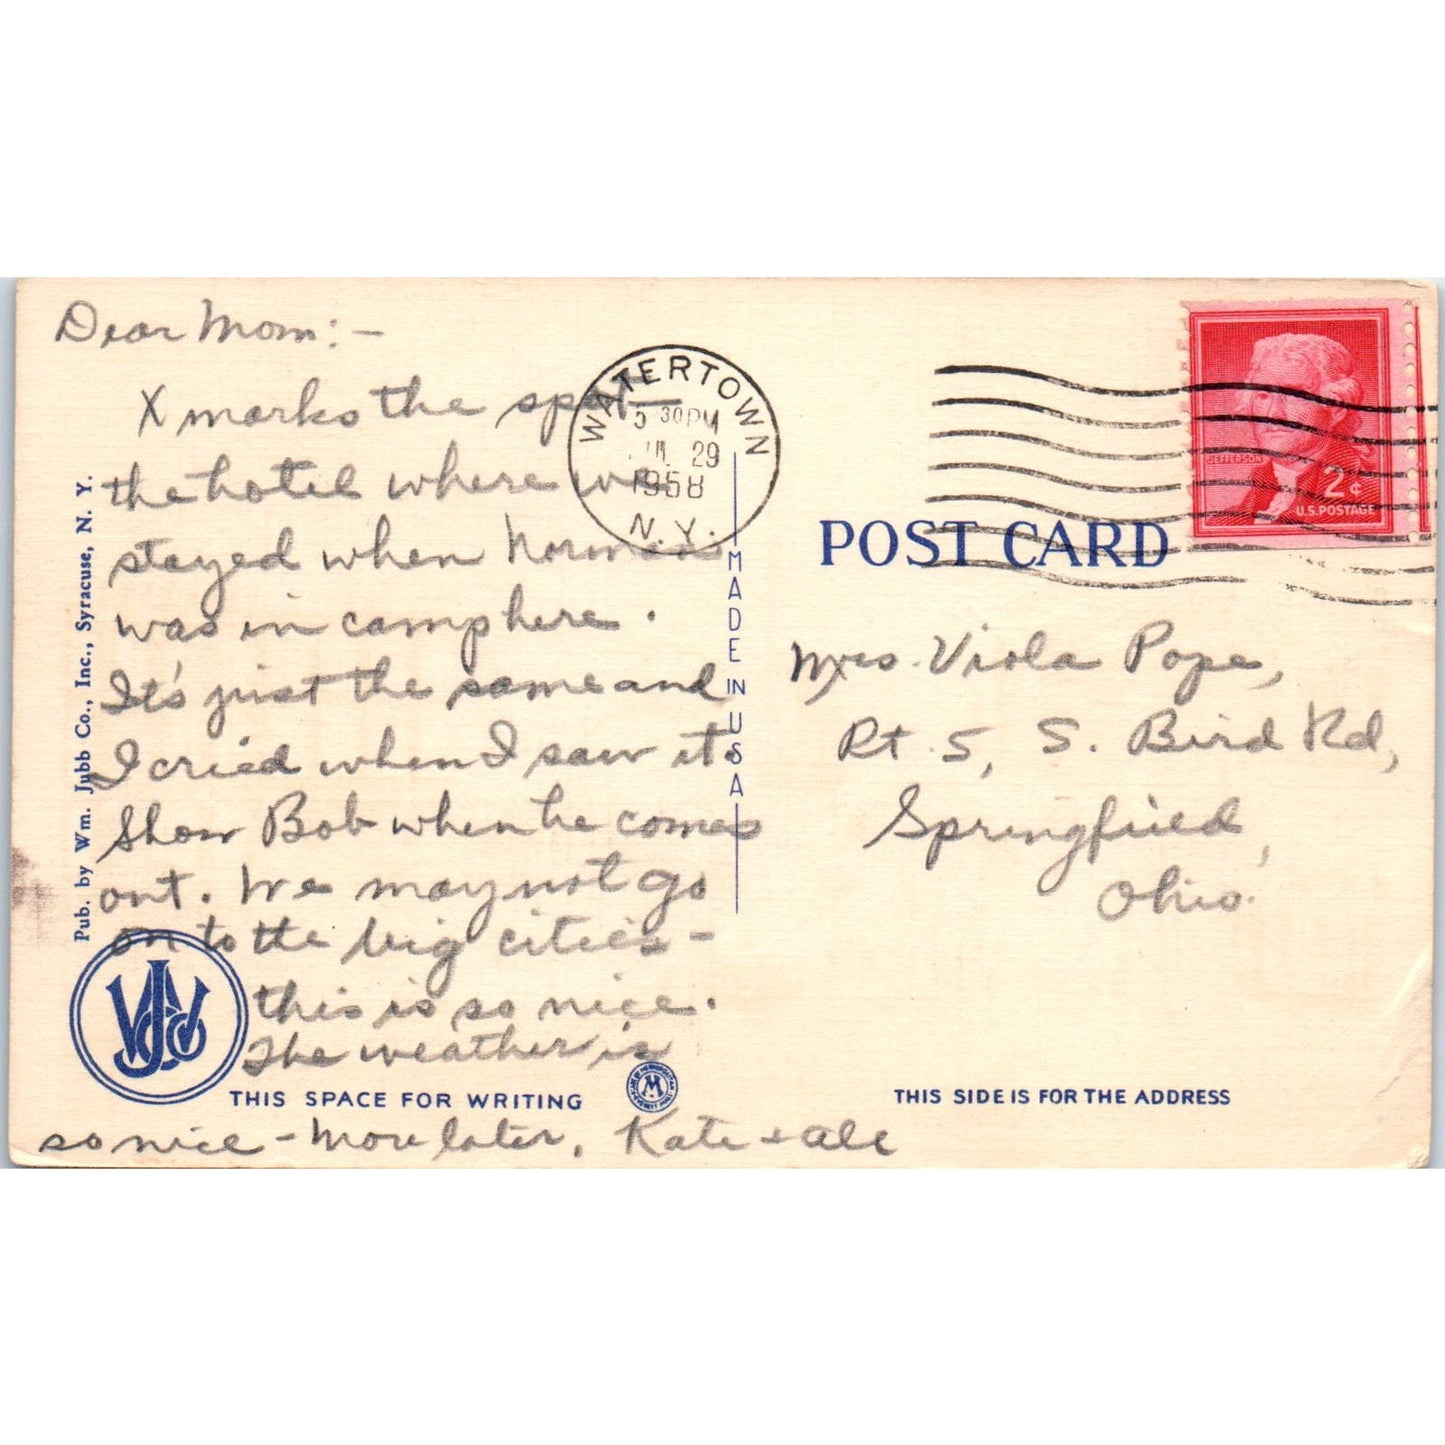 Dear Mom:-
X marks the spot—
the hotel where we
stayed when Norman
was in camp here.
It's just the same and
I cried when I saw it.
Show Bob when he comes
out. We may not go
on to the big cities -
this is so nice.
The weather is
so nice - More later, Kate + Al
Pub. by Wm. Jubb Co., Inc., Syracuse, N. Y.
THIS SPACE FOR WRITING
MADE IN USA
WATERTOWN
30 PM
JUL 29
1958
N.Y.
JEFFERSON
2¢
U.S. POSTAGE
POST CARD
Mrs. Viola Pope,
Rt. 5, S. Bird Rd,
Springfield,
Ohio.
THIS SIDE IS FOR THE ADDRESS